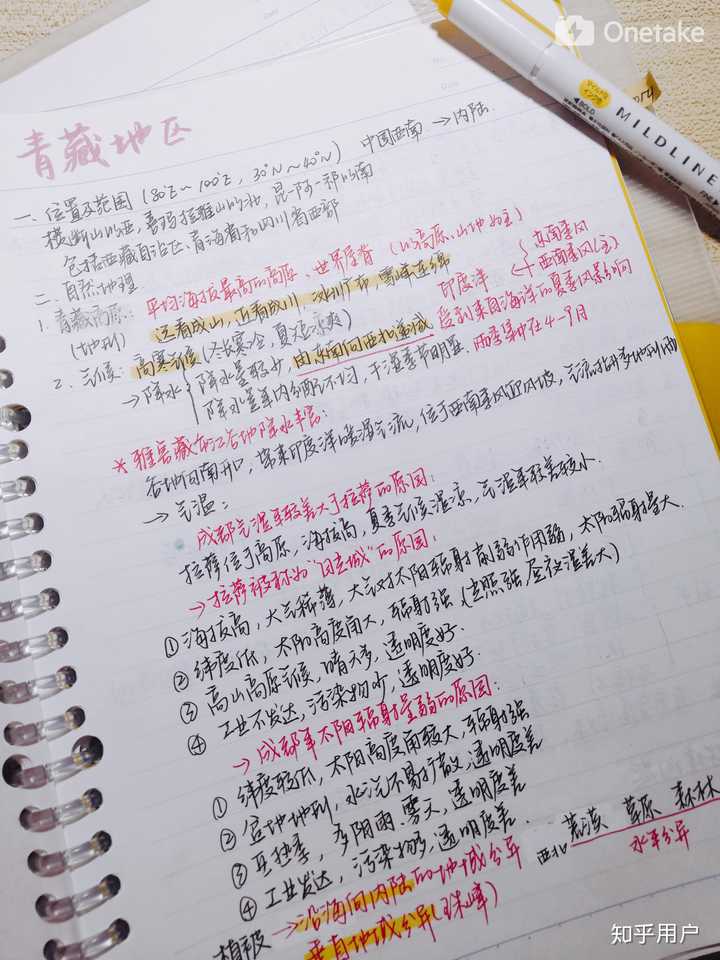 Onetake
MILDLINE
BOLD
青藏地区
一、位置及范围(80°E~100°E,30°N~40°N) 中国西南→内陆.
横断山以西,喜玛拉雅山以北,昆-阿-祁以南
包括西藏自治区、青海省和四川省西部
二、自然地理.
1. 青藏高原: 平均海拔最高的高原、世界屋脊 (以高原、山地为主)
(地形) 远看成山,近看成川,冰川广布,雪峰连绵
印度洋 ← { 东南季风
西南季风(主)
2. 气候: 高寒气候(冬长寒冷,夏短凉爽) 受到来自海洋的夏季风影响
→降水 { 降水量较少,由东南向西北递减 雨季集中在4-9月
降水量年内分配不均,干湿季节明显.
*雅鲁藏布江谷地降水丰富:
谷地向南开口,带来印度洋暖湿气流,位于西南季风迎风坡,气流抬升多地形雨
→气温:
成都气温年较差大于拉萨的原因:
拉萨位于高原,海拔高,夏季气候温凉,气温年较差较小.
→拉萨被称为“日光城”的原因:
①海拔高,大气稀薄,大气对太阳辐射削弱作用弱,太阳辐射量大.
②纬度低,太阳高度角大,辐射强(光照强,昼夜温差大)
③高山高原气候,晴天多,透明度好.
④工业不发达,污染物少,透明度好.
→成都年太阳辐射量弱的原因:
①纬度较低,太阳高度角较大,辐射强
②盆地地形,水汽不易扩散,透明度差
③ 多阴雨、雾天,透明度差
④工业发达,污染物多,透明度差.
植被 →沿海向内陆的地域分异 西北 荒漠 草原 森林
水平分异
垂直地域分异(珠峰)
知乎用户